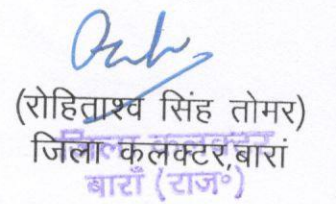 (रोहिताश्व सिंह तोमर)
जिला कलक्टर,बारां
जिला कलक्टर
बाराँ (राज॰)